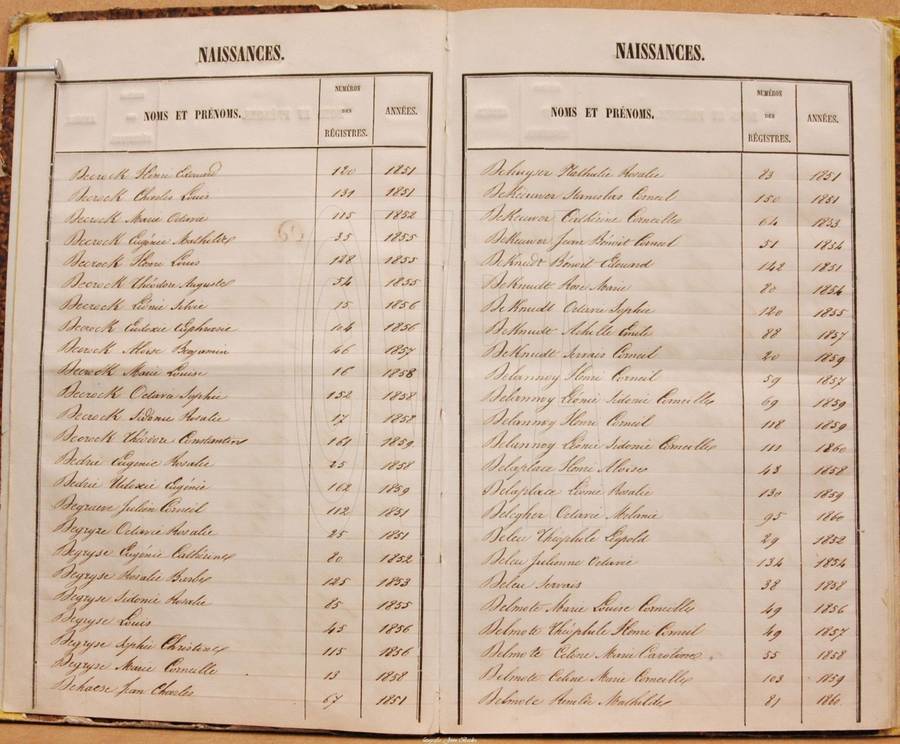 NAISSANCES.
NOMS ET PRÉNOMS. NUMÉROS DES RÉGISTRES. ANNÉES.
Decrock Henri Edouard 120 1851
Decrock Charles Louis 131 1851
Decrock Marie Octavie 115 1852
Decrock Eugénie Mathilde 35 1855
Decrock Henri Louis 128 1855
Decrock Théodore Auguste 54 1855
Decrock Léonie Silvie 15 1856
Decrock Eudoxie Euphrasie 104 1856
Decrock Aloïse Benjamin 46 1857
Decrock Marie Louise 16 1858
Decrock Octavie Sophie 152 1858
Decrock Sidonie Rosalie 17 1858
Decrock Théodore Constantin 161 1859
Dedrie Eugenie Rosalie 25 1858
Dedrie Eudoxie Eugénie 162 1859
Degraeve Julien Corneil 112 1851
Degryze Octavie Rosalie 25 1851
Degryse Eugénie Cathérine 80 1852
Degryse Rosalie Barbe 125 1853
Degryse Sidonie Rosalie 85 1855
Degryse Louis 45 1856
Degryse Sophie Christine 115 1856
Degryse Marie Corneille 13 1858
Dehaese Jean Charles 67 1851
NAISSANCES.
NOMS ET PRÉNOMS. NUMÉROS DES RÉGISTRES. ANNÉES.
Dekuyser Nathalie Rosalie 83 1851
DeKeuwer Stanislas Corneil 150 1851
DeKeuwer Cathérine Corneille 64 1853
DeKeuwer Jean Bénoit Corneil 51 1854
DeKnudt Bénoit Edouard 142 1851
DeKnudt Rosi Marie 80 1854
DeKnudt Octavie Sophie 120 1855
DeKnudt Achille Emile 88 1857
DeKnudt Servais Corneil 20 1859
Delannoy Henri Corneil 59 1857
Delannoy Léonie Sidonie Corneille 69 1859
Delannoy Henri Corneil 118 1859
Delannoy Léonie Sidonie Corneille 111 1860
Delaplace Henri Aloise 43 1858
Delaplace Léonie Rosalie 130 1859
Delegher Octavie Melanie 95 1860
Deleu Théophile Léopold 29 1852
Deleu Julienne Octavie 134 1854
Deleu Servais 38 1858
Delmote Marie Louise Corneille 49 1856
Delmote Théophile Henri Corneil 49 1857
Delmote Celine Marie Caroline 55 1858
Delmote Celine Marie Corneille 103 1859
Delmote Amélie Mathilde 81 1860